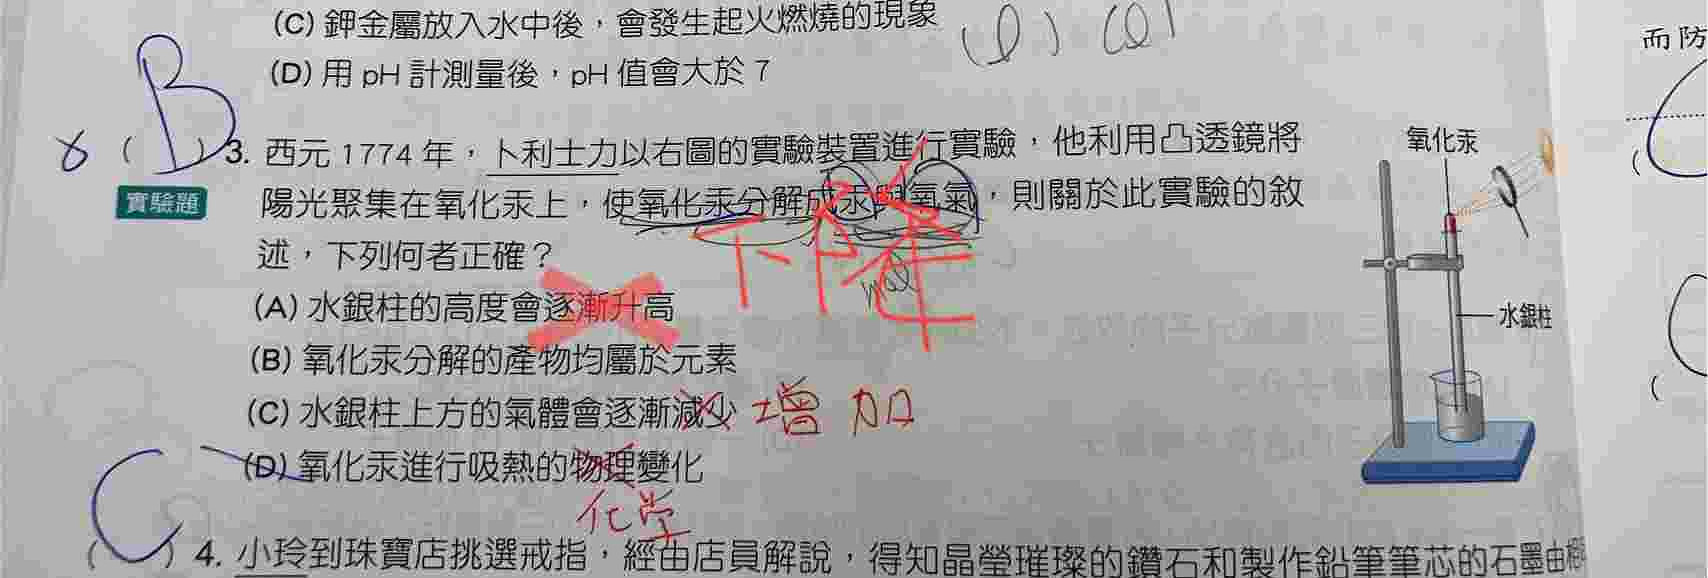 (C) 鉀金屬放入水中後，會發生起火燃燒的現象
(D) 用 pH 計測量後，pH 值會大於 7
而防
B
( ) 3. 西元 1774 年，卜利士力以右圖的實驗裝置進行實驗，他利用凸透鏡將
實驗題
陽光聚集在氧化汞上，使氧化汞分解成汞與氧氣，則關於此實驗的敘
述，下列何者正確？
下降
(A) 水銀柱的高度會逐漸升高
(B) 氧化汞分解的產物均屬於元素
(C) 水銀柱上方的氣體會逐漸減少 增加
(D) 氧化汞進行吸熱的物理變化
化学
氧化汞
水銀柱
C
( ) 4. 小玲到珠寶店挑選戒指，經由店員解說，得知晶瑩璀璨的鑽石和製作鉛筆筆芯的石墨由